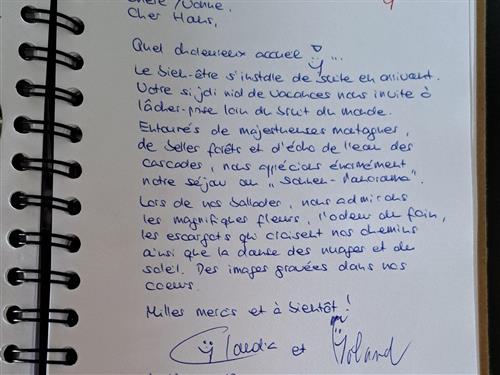 Chère Yvonne,
Cher Hans,
Quel chaleureux accueil ! ...
Le bien-être s'installe de suite en arrivant.
Votre si joli nid de vacances nous invite à
lâcher-prise loin du bruit du monde.
Entourés de majestueuses montagnes,
de belles forêts et d'écho de l'eau des
cascades, nous apprécions énormément
notre séjour au "Sonnen-Panorama".
Lors de nos ballades, nous admirons
les magnifiques fleurs, l'odeur du foin,
les escargots qui croisent nos chemins
ainsi que la danse des nuages et du
soleil. Des images gravées dans nos
coeurs.
Milles mercis et à bientôt !
Claudia et Roland